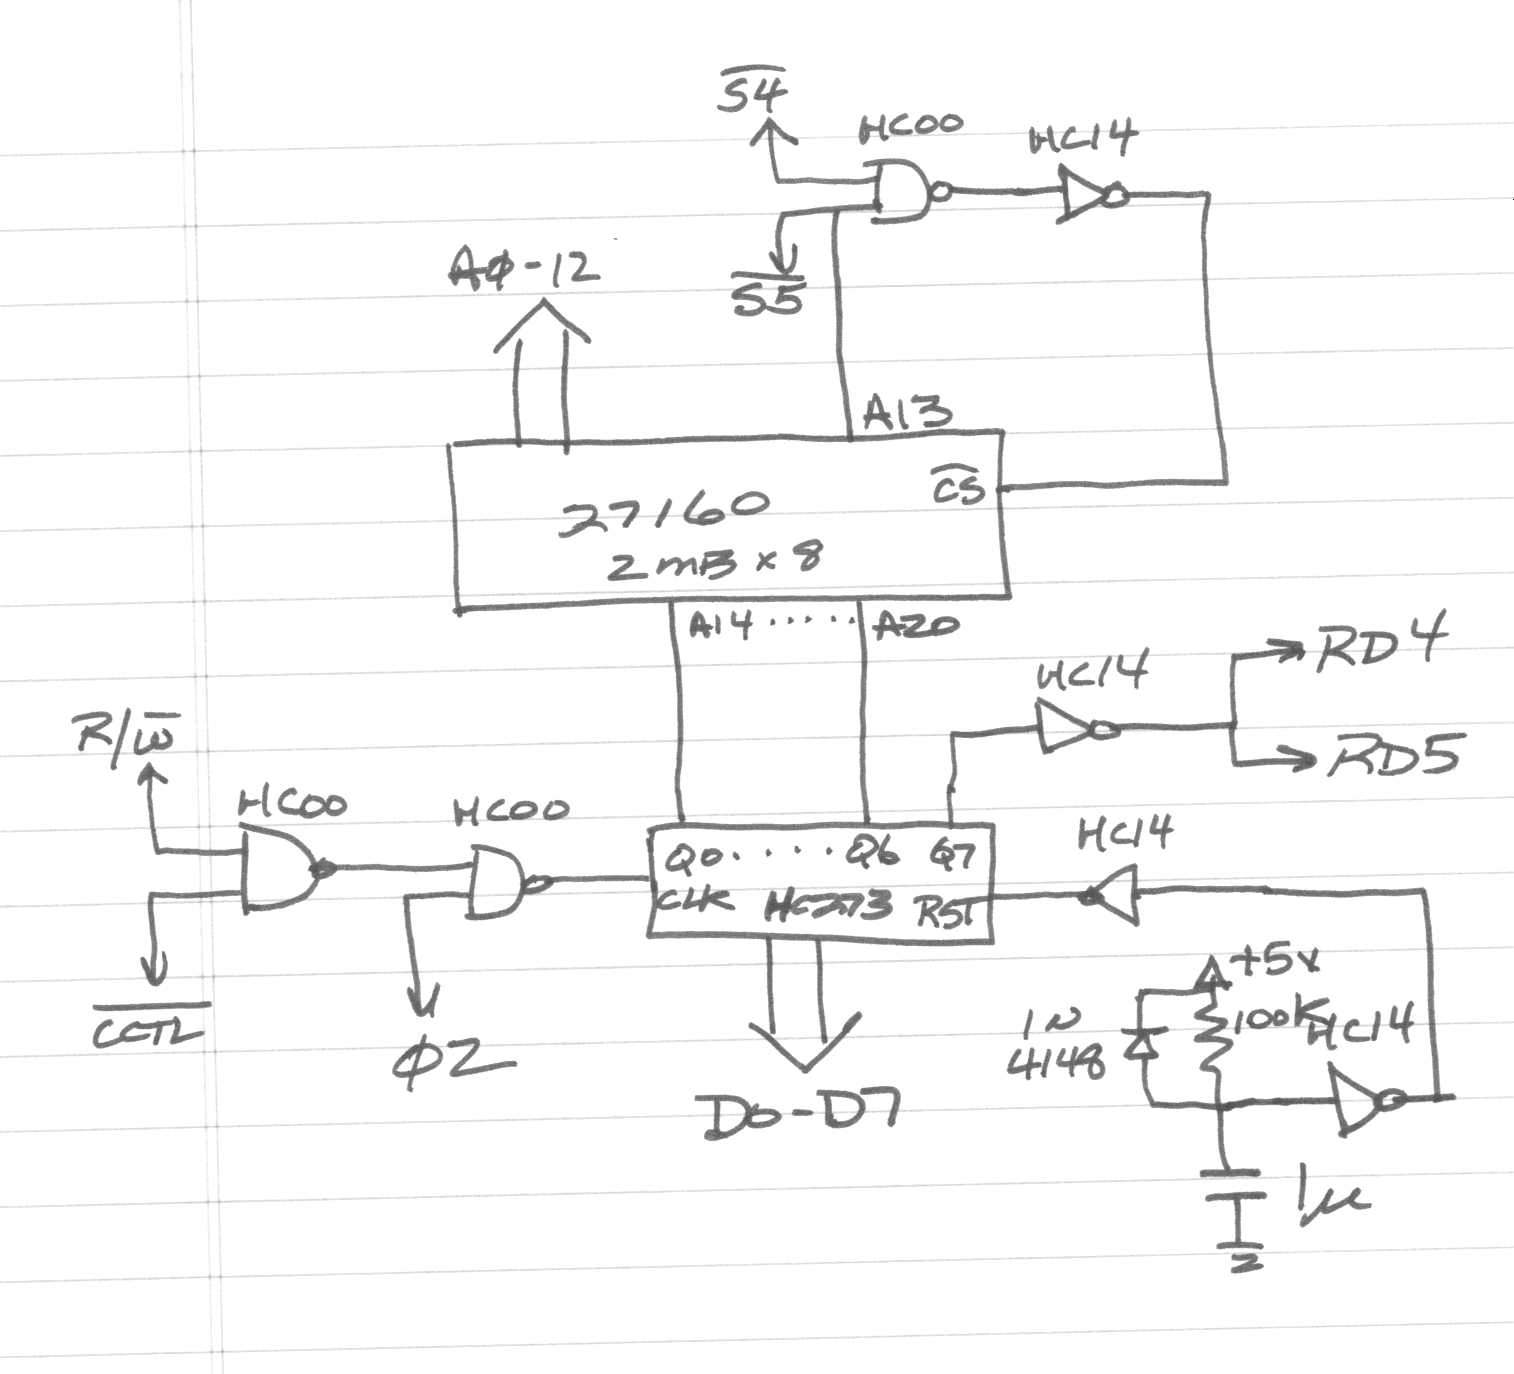 S4
HC00
HC14
AΦ-12
S5
A13
CS
27160
2mB x 8
A14 ...... A20
HC14
RD4
R/W
RD5
HC00
HC00
HC14
Q0.....Q6 Q7
CLK HC273 RST
+5V
CCTL
Φ2
1N
4148
100K
HC14
D0-D7
1μ